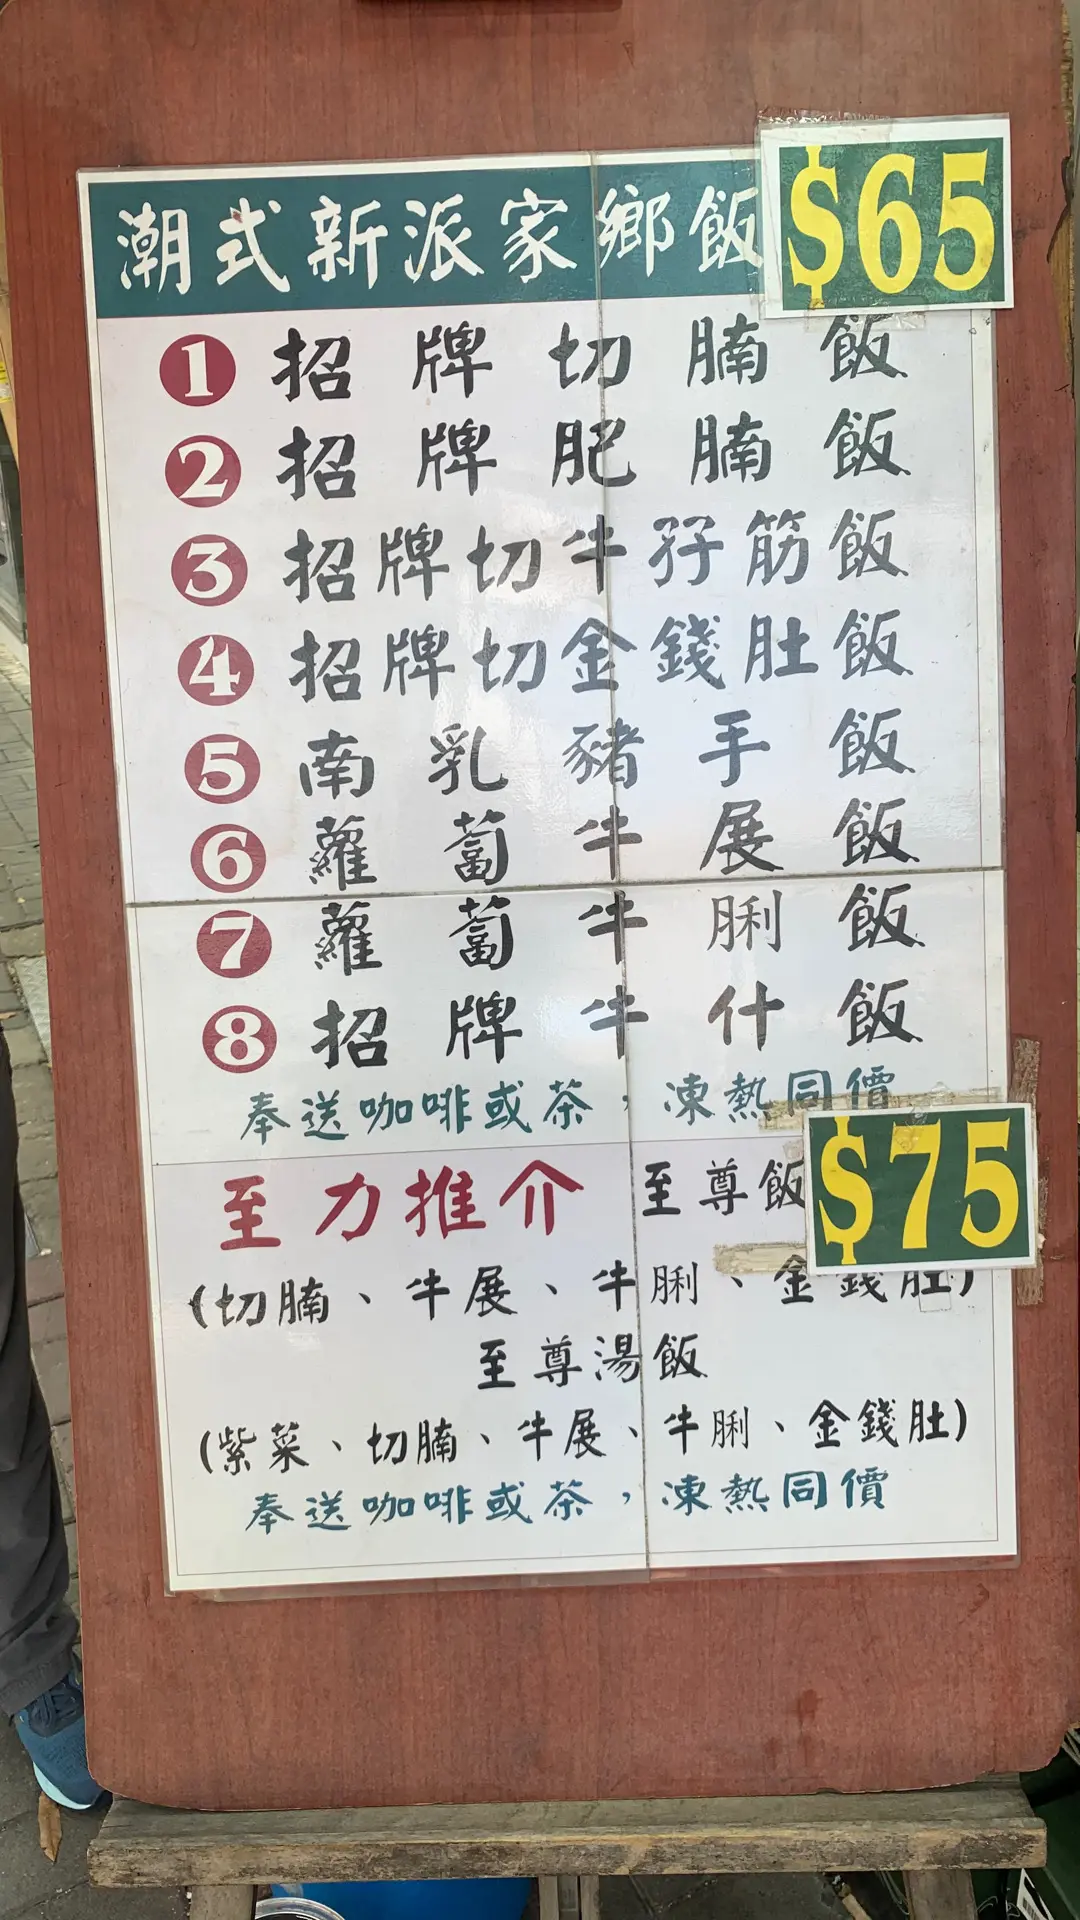 潮式新派家鄉飯 $65
1 招牌切腩飯
2 招牌肥腩飯
3 招牌切牛孖筋飯
4 招牌切金錢肚飯
5 南乳豬手飯
6 蘿蔔牛展飯
7 蘿蔔牛脷飯
8 招牌牛什飯
奉送咖啡或茶，凍熱同價
至力推介 至尊飯 $75
(切腩、牛展、牛脷、金錢肚)
至尊湯飯
(紫菜、切腩、牛展、牛脷、金錢肚)
奉送咖啡或茶，凍熱同價